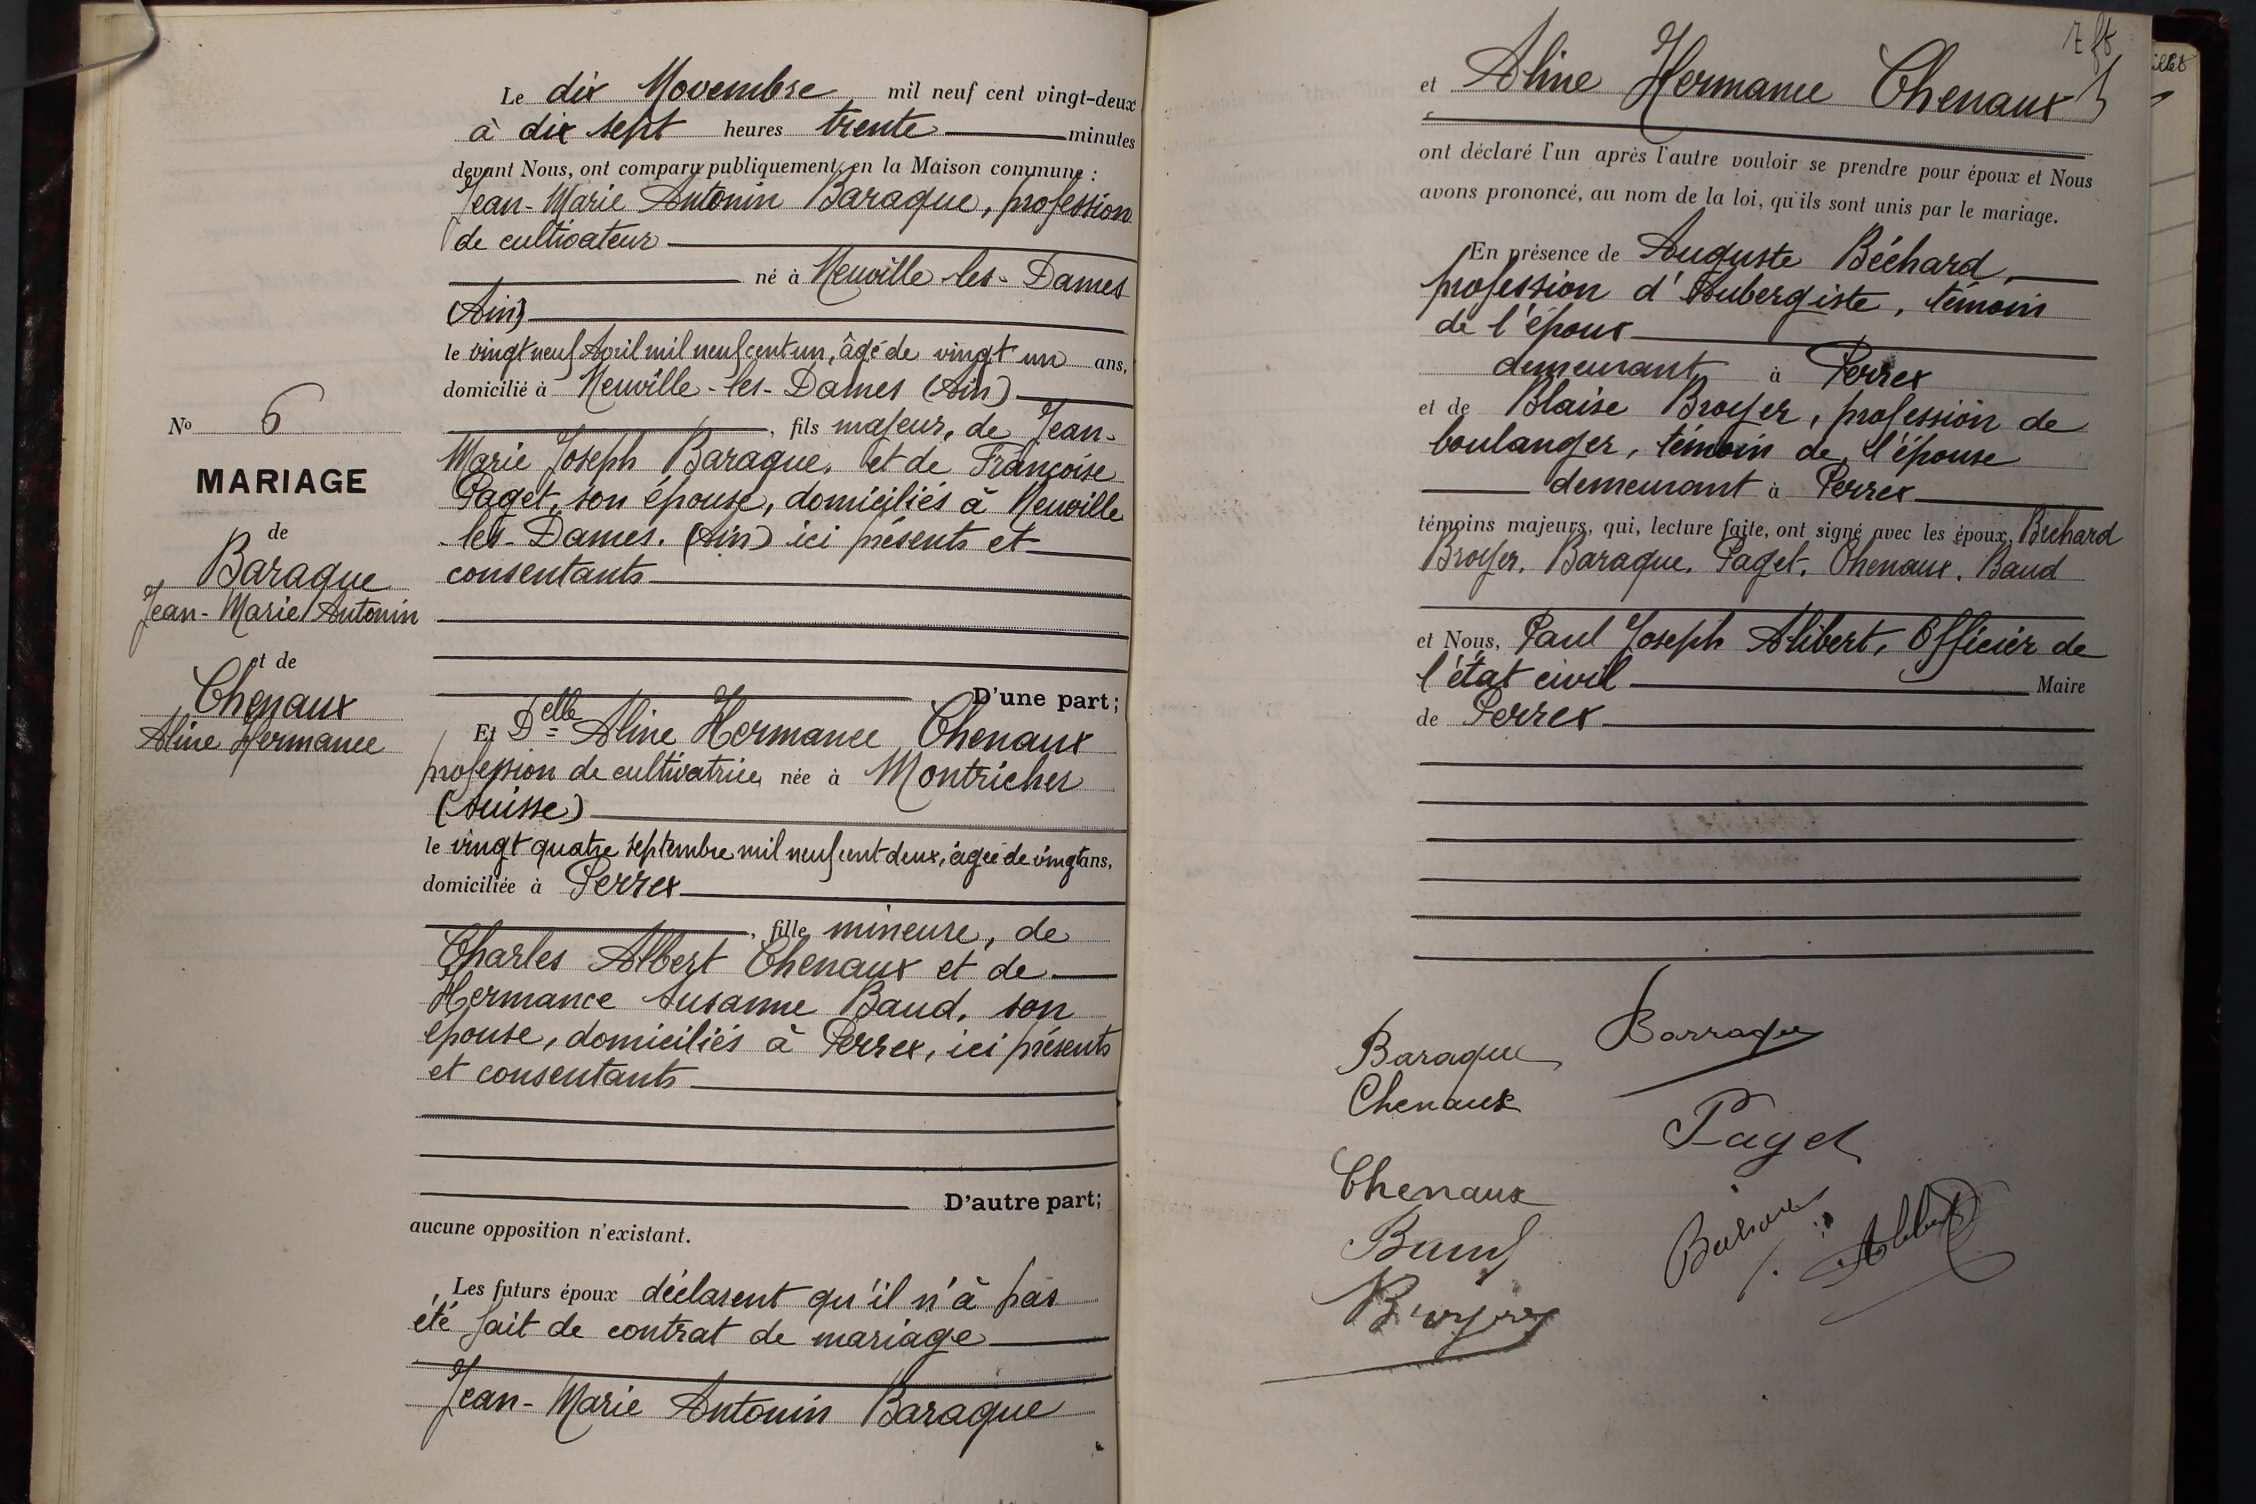 Le dix Novembre mil neuf cent vingt-deux
à dix sept heures trente minutes
devant Nous, ont comparu publiquement en la Maison commune :
Jean-Marie Antonin Baraque, profession
de cultivateur
né à Neuville-les-Dames
(Ain)
le vingt neuf Avril mil neuf cent un, âgé de vingt un ans,
domicilié à Neuville-les-Dames (Ain)
, fils majeur, de Jean-
Marie Joseph Baraque, et de Françoise
Paget, son épouse, domiciliés à Neuville
-les-Dames. (Ain) ici présents et
consentants
D'une part;
Et Delle Aline Hermance Chenaux
profession de cultivatrice, née à Montricher
(Suisse)
le vingt quatre septembre mil neuf cent deux, âgée de vingt ans,
domiciliée à Perrex
, fille mineure, de
Charles Albert Chenaux et de
Hermance Susanne Baud, son
épouse, domiciliés à Perrex, ici présents
et consentants
D'autre part;
aucune opposition n'existant.
Les futurs époux déclarent qu'il n'à pas
été fait de contrat de mariage
Jean-Marie Antonin Baraque
No 6
MARIAGE
de
Baraque
Jean-Marie Antonin
et de
Chenaux
Aline Hermance
et Aline Hermance Chenaux
ont déclaré l'un après l'autre vouloir se prendre pour époux et Nous
avons prononcé, au nom de la loi, qu'ils sont unis par le mariage.
En présence de Auguste Béchard,
profession d'Aubergiste, témoin
de l'époux
demeurant à Perrex
et de Blaise Broyer, profession de
boulanger, témoin de l'épouse
demeurant à Perrex
témoins majeurs, qui, lecture faite, ont signé avec les époux, Béchard
Broyer, Baraque, Paget, Chenaux, Baud
et Nous, Paul Joseph Alibert, Officier de
l'état civil Maire
de Perrex
Baraque
Barraque
Chenaux
Paget
Chenaux
Baud
Alibert
Broyer